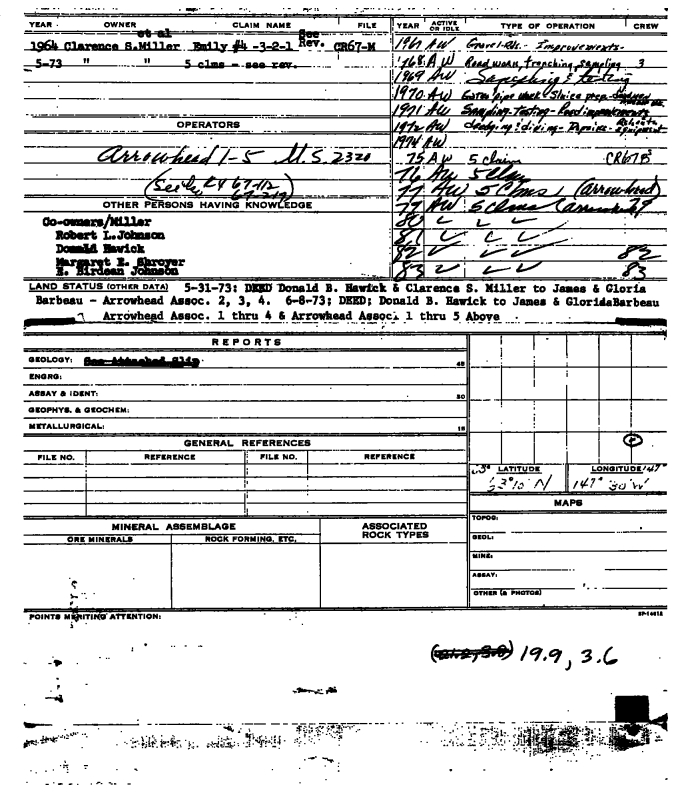 YEAR OWNER CLAIM NAME FILE YEAR ACTIVE OR IDLE TYPE OF OPERATION CREW
et al See
1964 Clarence S.Miller Emily #4 -3-2-1 Rev. CR67-M
5-73 " " 5 clms - see rev.
1967 AW Improvements-
'68 A W Road work, trenching, sampling 3
1969 AW Sampling & testing
1970 AW Sluice prep-
1971 AW Sampling-Testing-Road improvements
1972 AW equipment
1974 AW
75 AW 5 claim CR67B
76 AW 5 Clms
77 AW 5 Clms (arrowhead)
79
80
81
82 82
83 83
OPERATORS
Arrowhead 1-5 M.S. 2320
OTHER PERSONS HAVING KNOWLEDGE
Co-owners/Miller
Robert L.Johnson
Donald Hawick
Margaret E. Shroyer
H. Birdean Johnson
LAND STATUS (OTHER DATA) 5-31-73: DEED Donald B. Hawick & Clarence S. Miller to James & Gloria
Barbeau - Arrowhead Assoc. 2, 3, 4. 6-8-73; DEED; Donald B. Hawick to James & GloriaBarbeau
Arrowhead Assoc. 1 thru 4 & Arrowhead Assoc. 1 thru 5 Above
REPORTS
GEOLOGY: See Attached Slip.
ENGRG:
ASSAY & IDENT:
GEOPHYS. & GEOCHEM:
METALLURGICAL:
GENERAL REFERENCES
FILE NO. REFERENCE FILE NO. REFERENCE
LATITUDE LONGITUDE 147°
147° 30' W
MAPS
MINERAL ASSEMBLAGE
ORE MINERALS ROCK FORMING, ETC.
ASSOCIATED ROCK TYPES
TOPOG:
GEOL:
MINE:
ASSAY:
OTHER (& PHOTOS)
POINTS MERITING ATTENTION:
19.9, 3.6